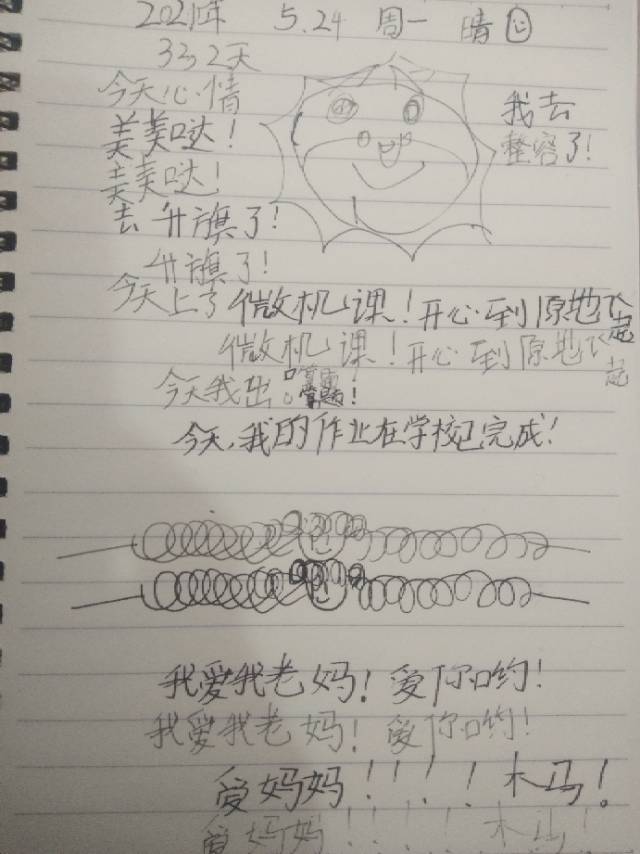 2021年 5.24 周一 晴
332天
今天心情
美美哒!
美美哒!
去升旗了!
升旗了!
我去
整容了!
今天上了微机课!开心到原地飞起
微机课!开心到原地飞起
今天我出
今天,我的作业在学校已完成!
我爱我老妈!爱你哟!
我爱我老妈!爱你哟!
爱妈妈!!!!!木马!
爱妈妈!!!!!木马!